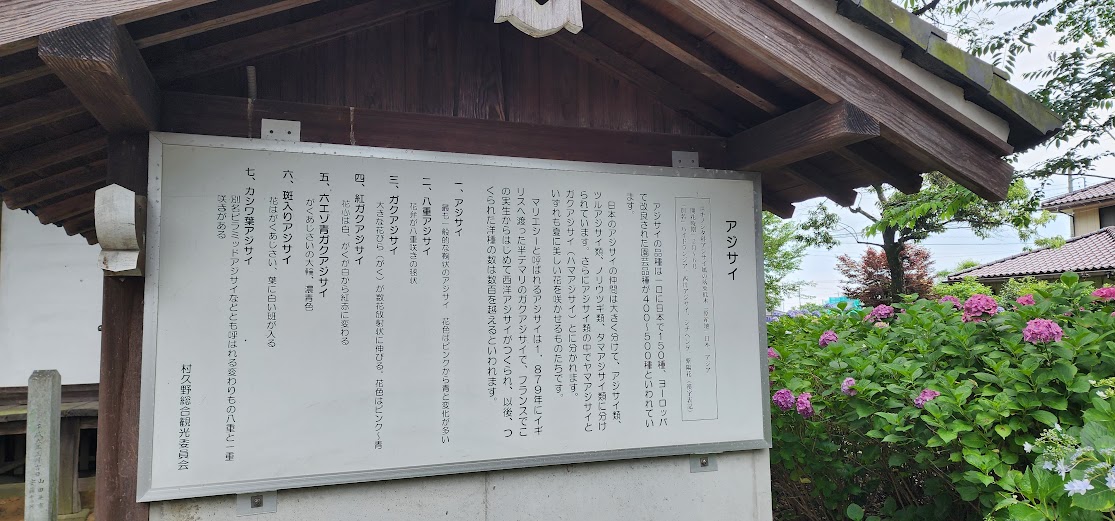 アジサイ
アジサイの品種は一口に日本で150種、ヨーロッパ
で改良された園芸品種が400〜500種といわれてい
ます。
日本のアジサイの仲間は大きく分けて、アジサイ類、
ツルアジサイ類、ノリウツギ類、タマアジサイ類に分け
られています。さらにアジサイ類の中でヤマアジサイと
ガクアジサイ(ハマアジサイ)とに分かれます。
いずれも夏に美しい花を咲かせるものたちです。
マリエシーと呼ばれるアジサイは1,879年にイギ
リスへ渡った半テマリのガクアジサイで、フランスでこ
の実生からはじめて西洋アジサイがつくられ、以後、つ
くられた洋種の数は数百を越えるといわれます。
一、アジサイ
最も一般的な毬状のアジサイ 花色はピンクから青と変化が多い
二、八重アジサイ
花弁が八重咲きの毬状
三、ガクアジサイ
大きな花びら(がく)が数花放射状に伸びる。花色はピンク〜青
四、紅ガクアジサイ
花色は白、がくが白から紅赤に変わる
五、六エゾ青ガクアジサイ
がくあじさいの大輪、濃青色
六、斑入りアジサイ
花はがくあじさい、葉に白い斑が入る
七、カシワ葉アジサイ
別名ピラミッドアジサイなどとも呼ばれる変わりもの八重と一重
咲きがある
村久野総合観光委員会